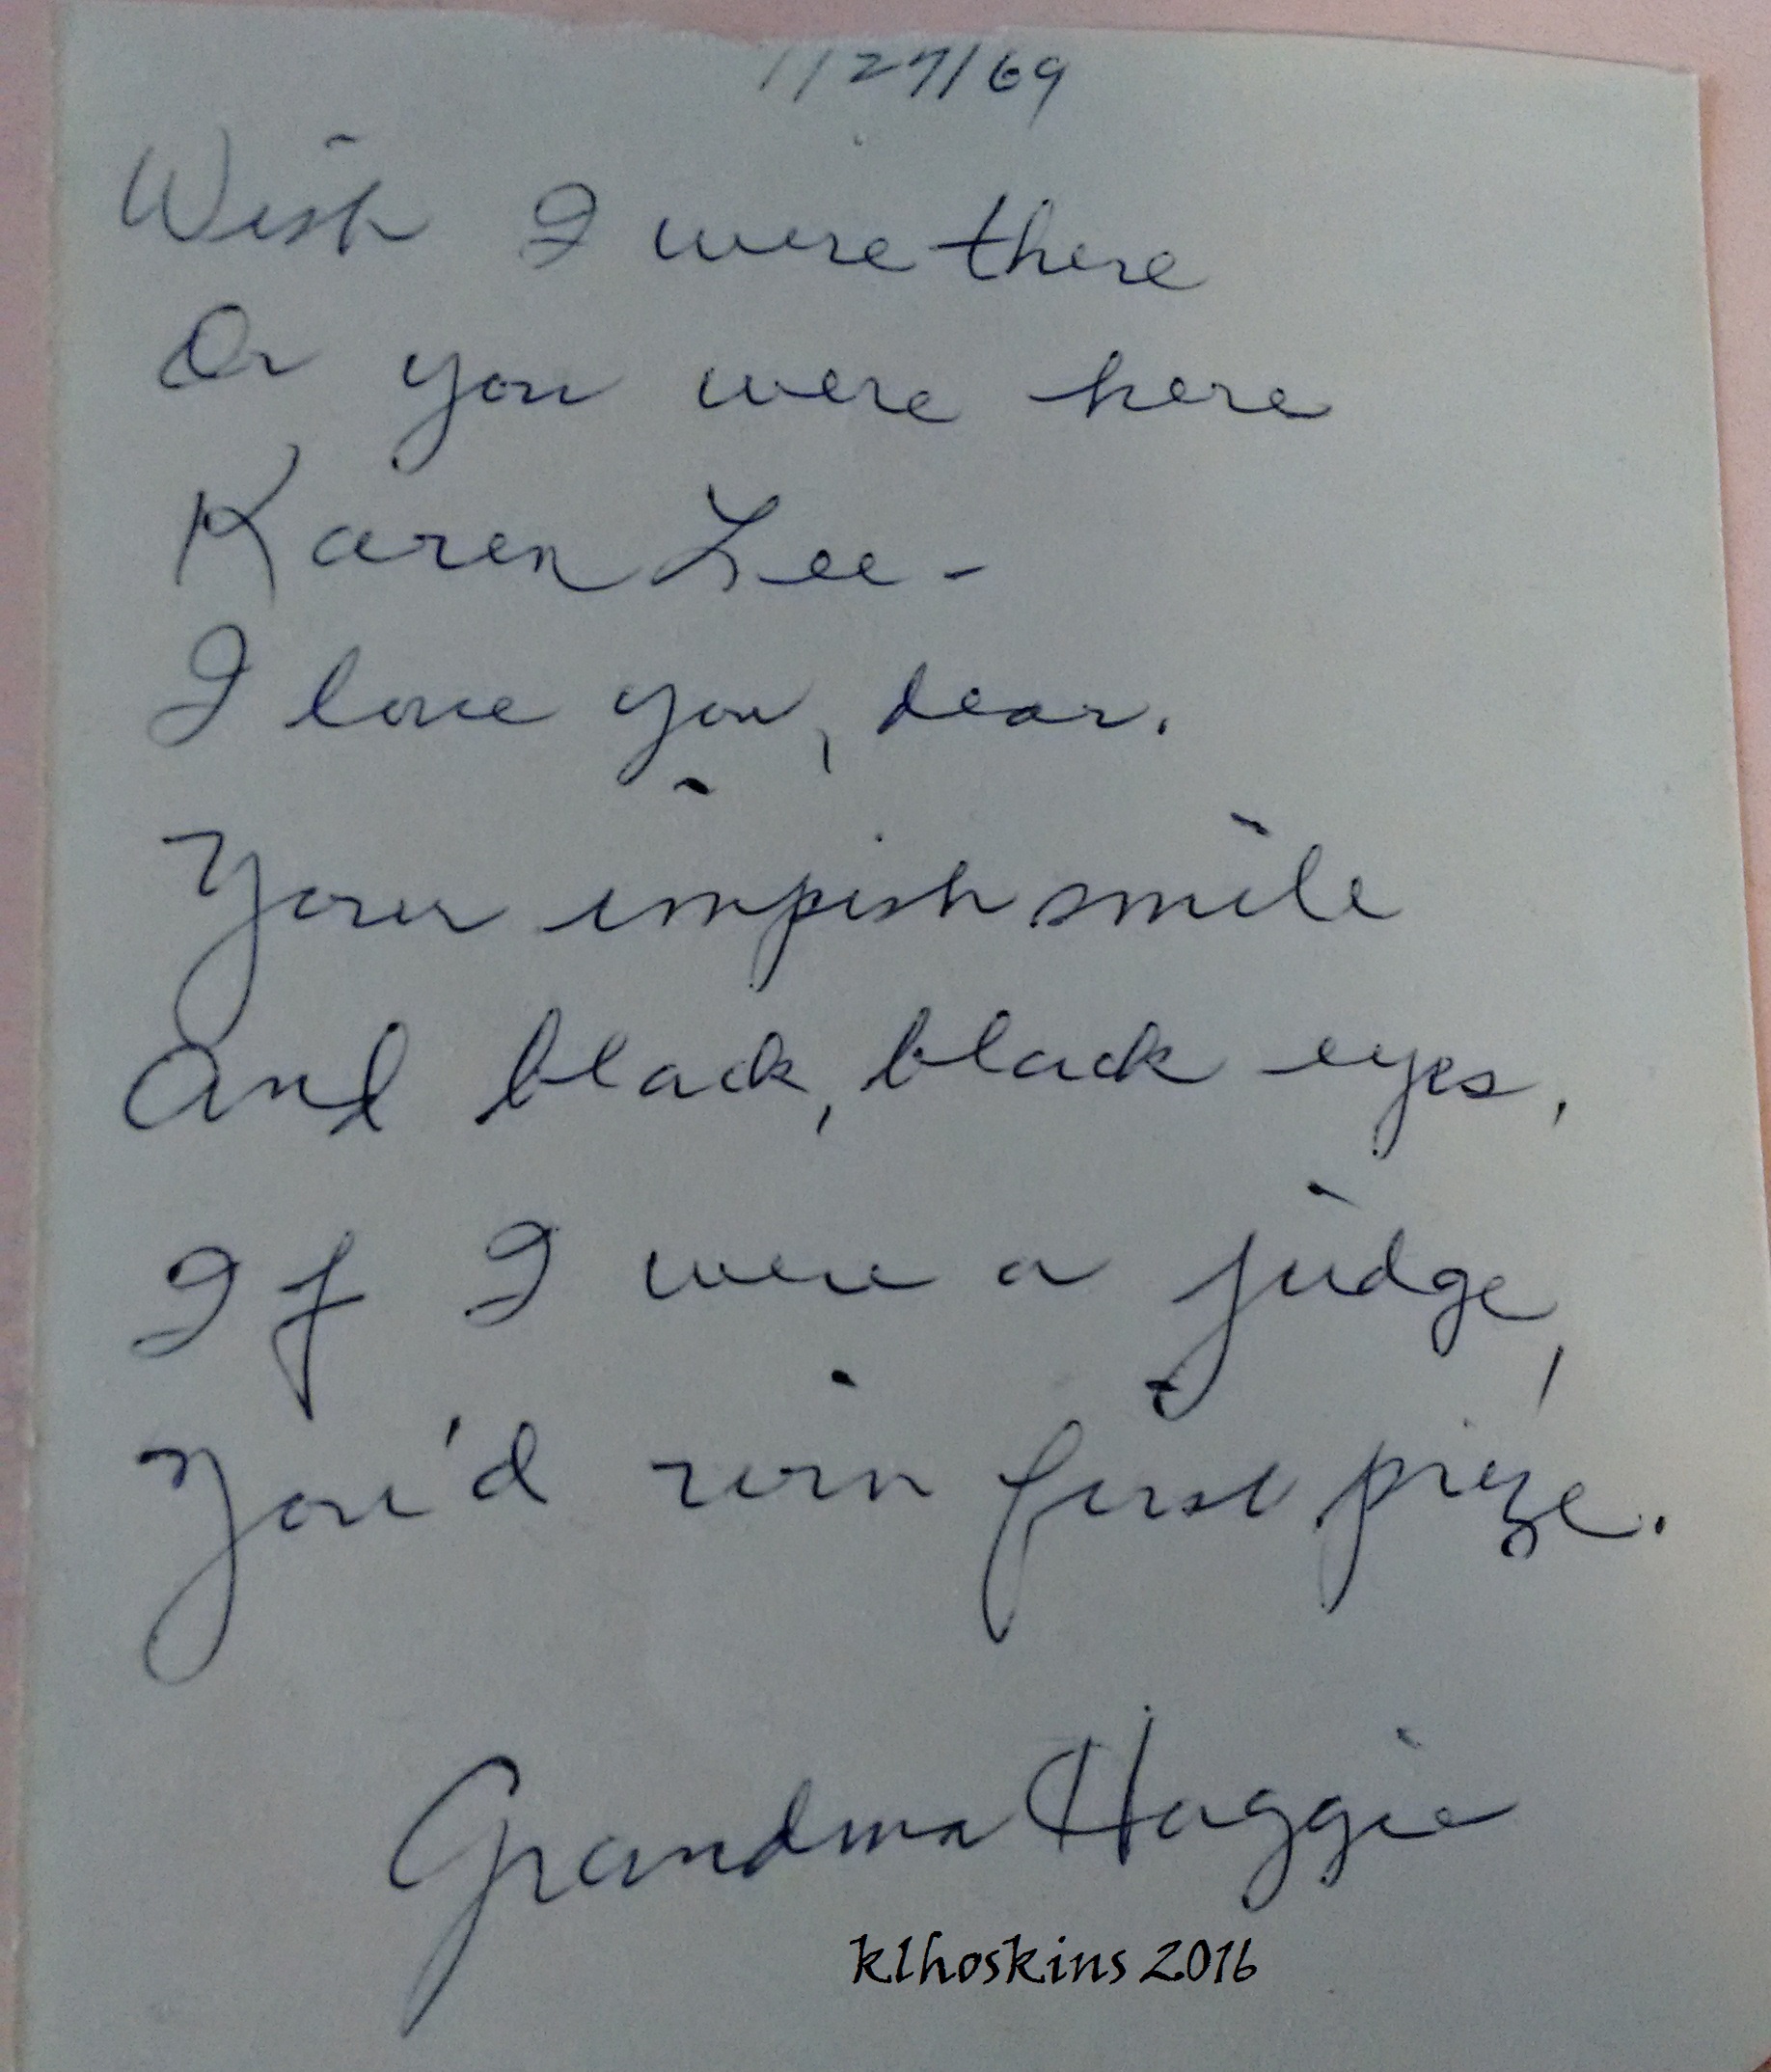 1/27/69
Wish I were there
Or you were here
Karen Lee -
I love you, dear.
Your impish smile
And black, black eyes,
If I were a judge,
You'd win first prize.
Grandma Haggie
klhoskins 2016